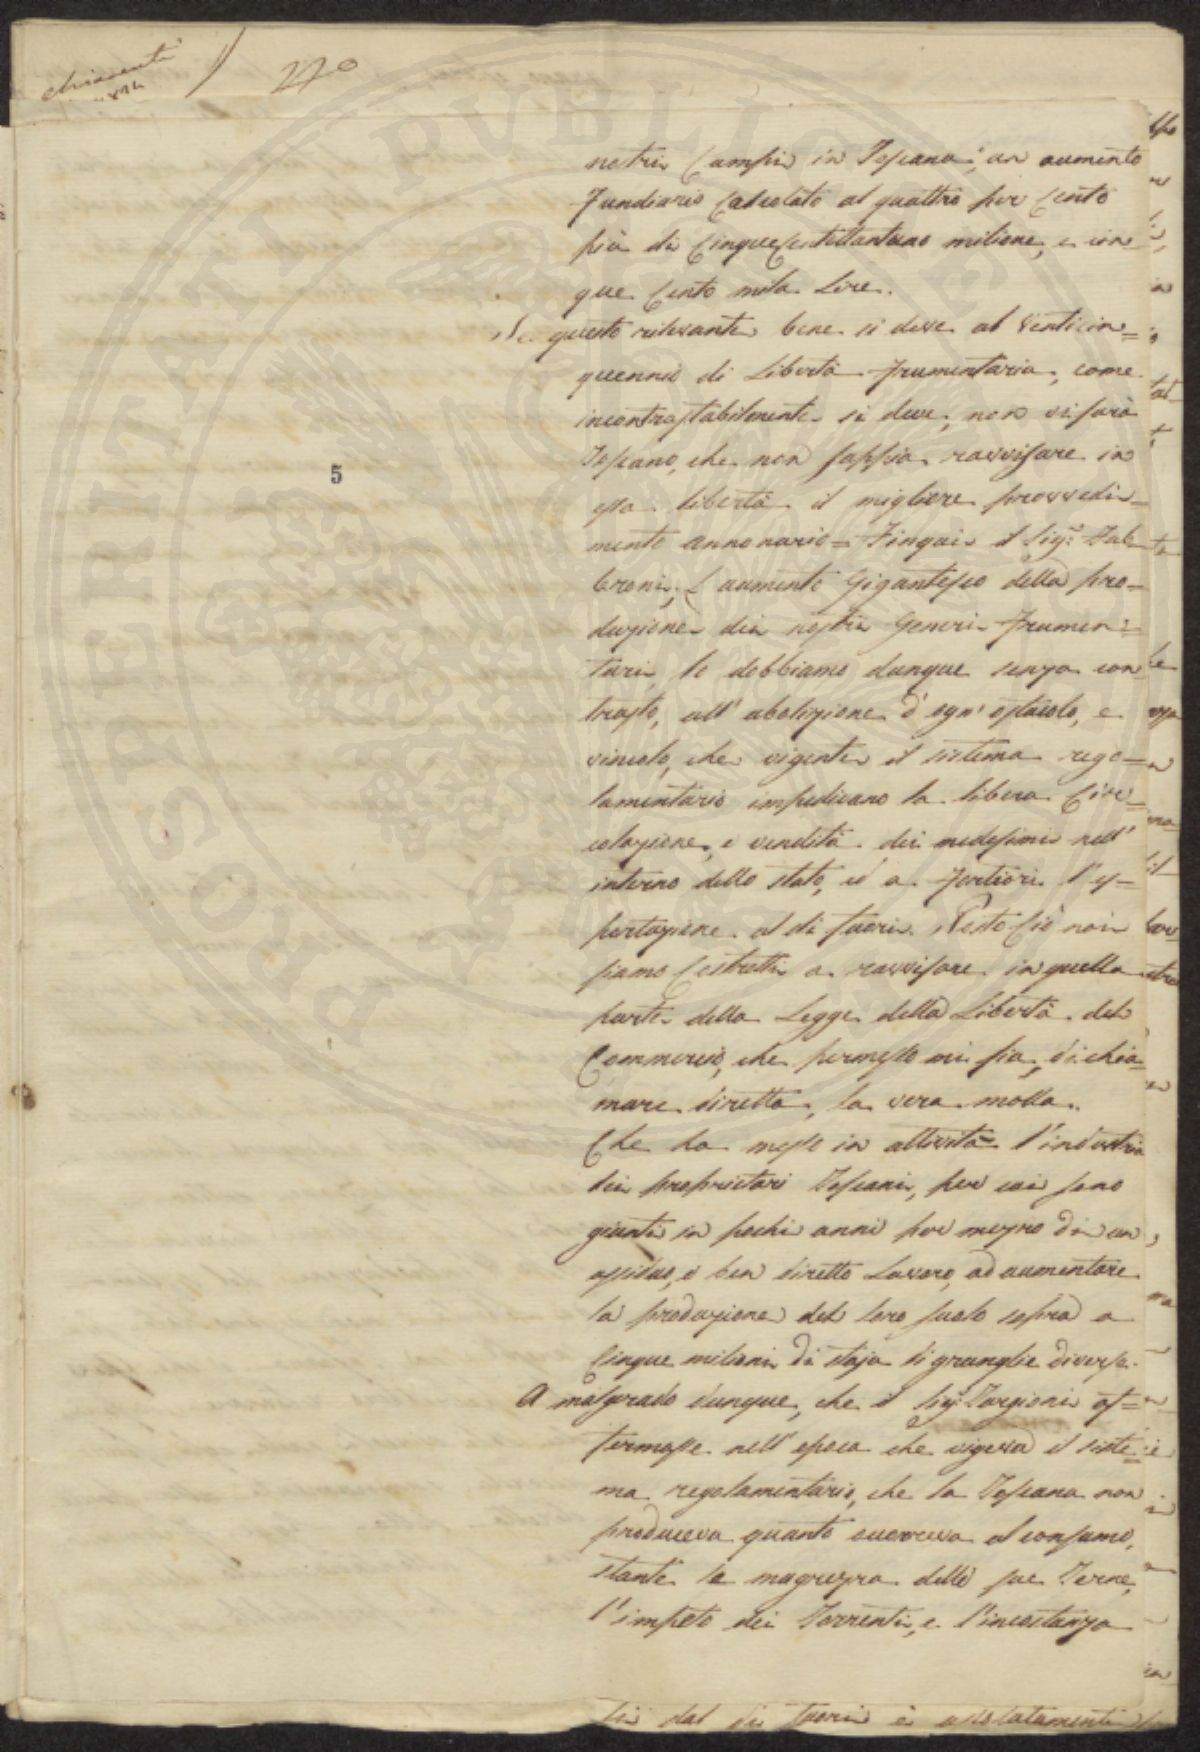 270
nostri Campi in Toscana; un aumento
Fundiario Calcolato al quattro per Cento
più di milione, e cin
que Cento mila Lire.
Se questo rilevante bene si deve al Venticin=
quennio di Libertà frumentaria, come
incontrastabilmente si deve, non vi sarà
Toscano, che non sappia ravvisare in
essa libertà il migliore provvedi=
mento annonario= Finquì il Sigr. Fab=
broni; L'aumento Gigantesco della pro=
duzione dei nostri Generi Frumen=
tari, lo dobbiamo dunque senza con
trasto, all'abolizione d'ogn'ostacolo, e
vincolo, che vigente il sistema rego=
lamentario impedivano la libera Cir=
colazione, e vendita dei medesimi nell'
interno dello stato, ed a fortiori l'es=
portazione al di fuori. Posto Ciò noi
siamo Costretti a ravvisare in quella
parte della Legge della Libertà del
Commercio, che permesso mi sia, di chia=
mare diretta, la vera molla.
Che ha messo in attività l'industria
dei proprietari Toscani, per cui sono
giunti in pochi anni per mezzo di un
assiduo, e ben diretto Lavoro, ad aumentare
la produzione del loro suolo sopra a
Cinque milioni di staja di granaglie diverse.
A malgrado dunque, che il Sigr. Targioni af=
fermasse nell'epoca che vigeva il siste=
ma regolamentario, che la Toscana non
produceva quanto occorreva al consumo,
stante la magrezza delle sue Terre,
l'impeto dei Torrenti, e l'incostanza
5
dal di fuori è assolutamente